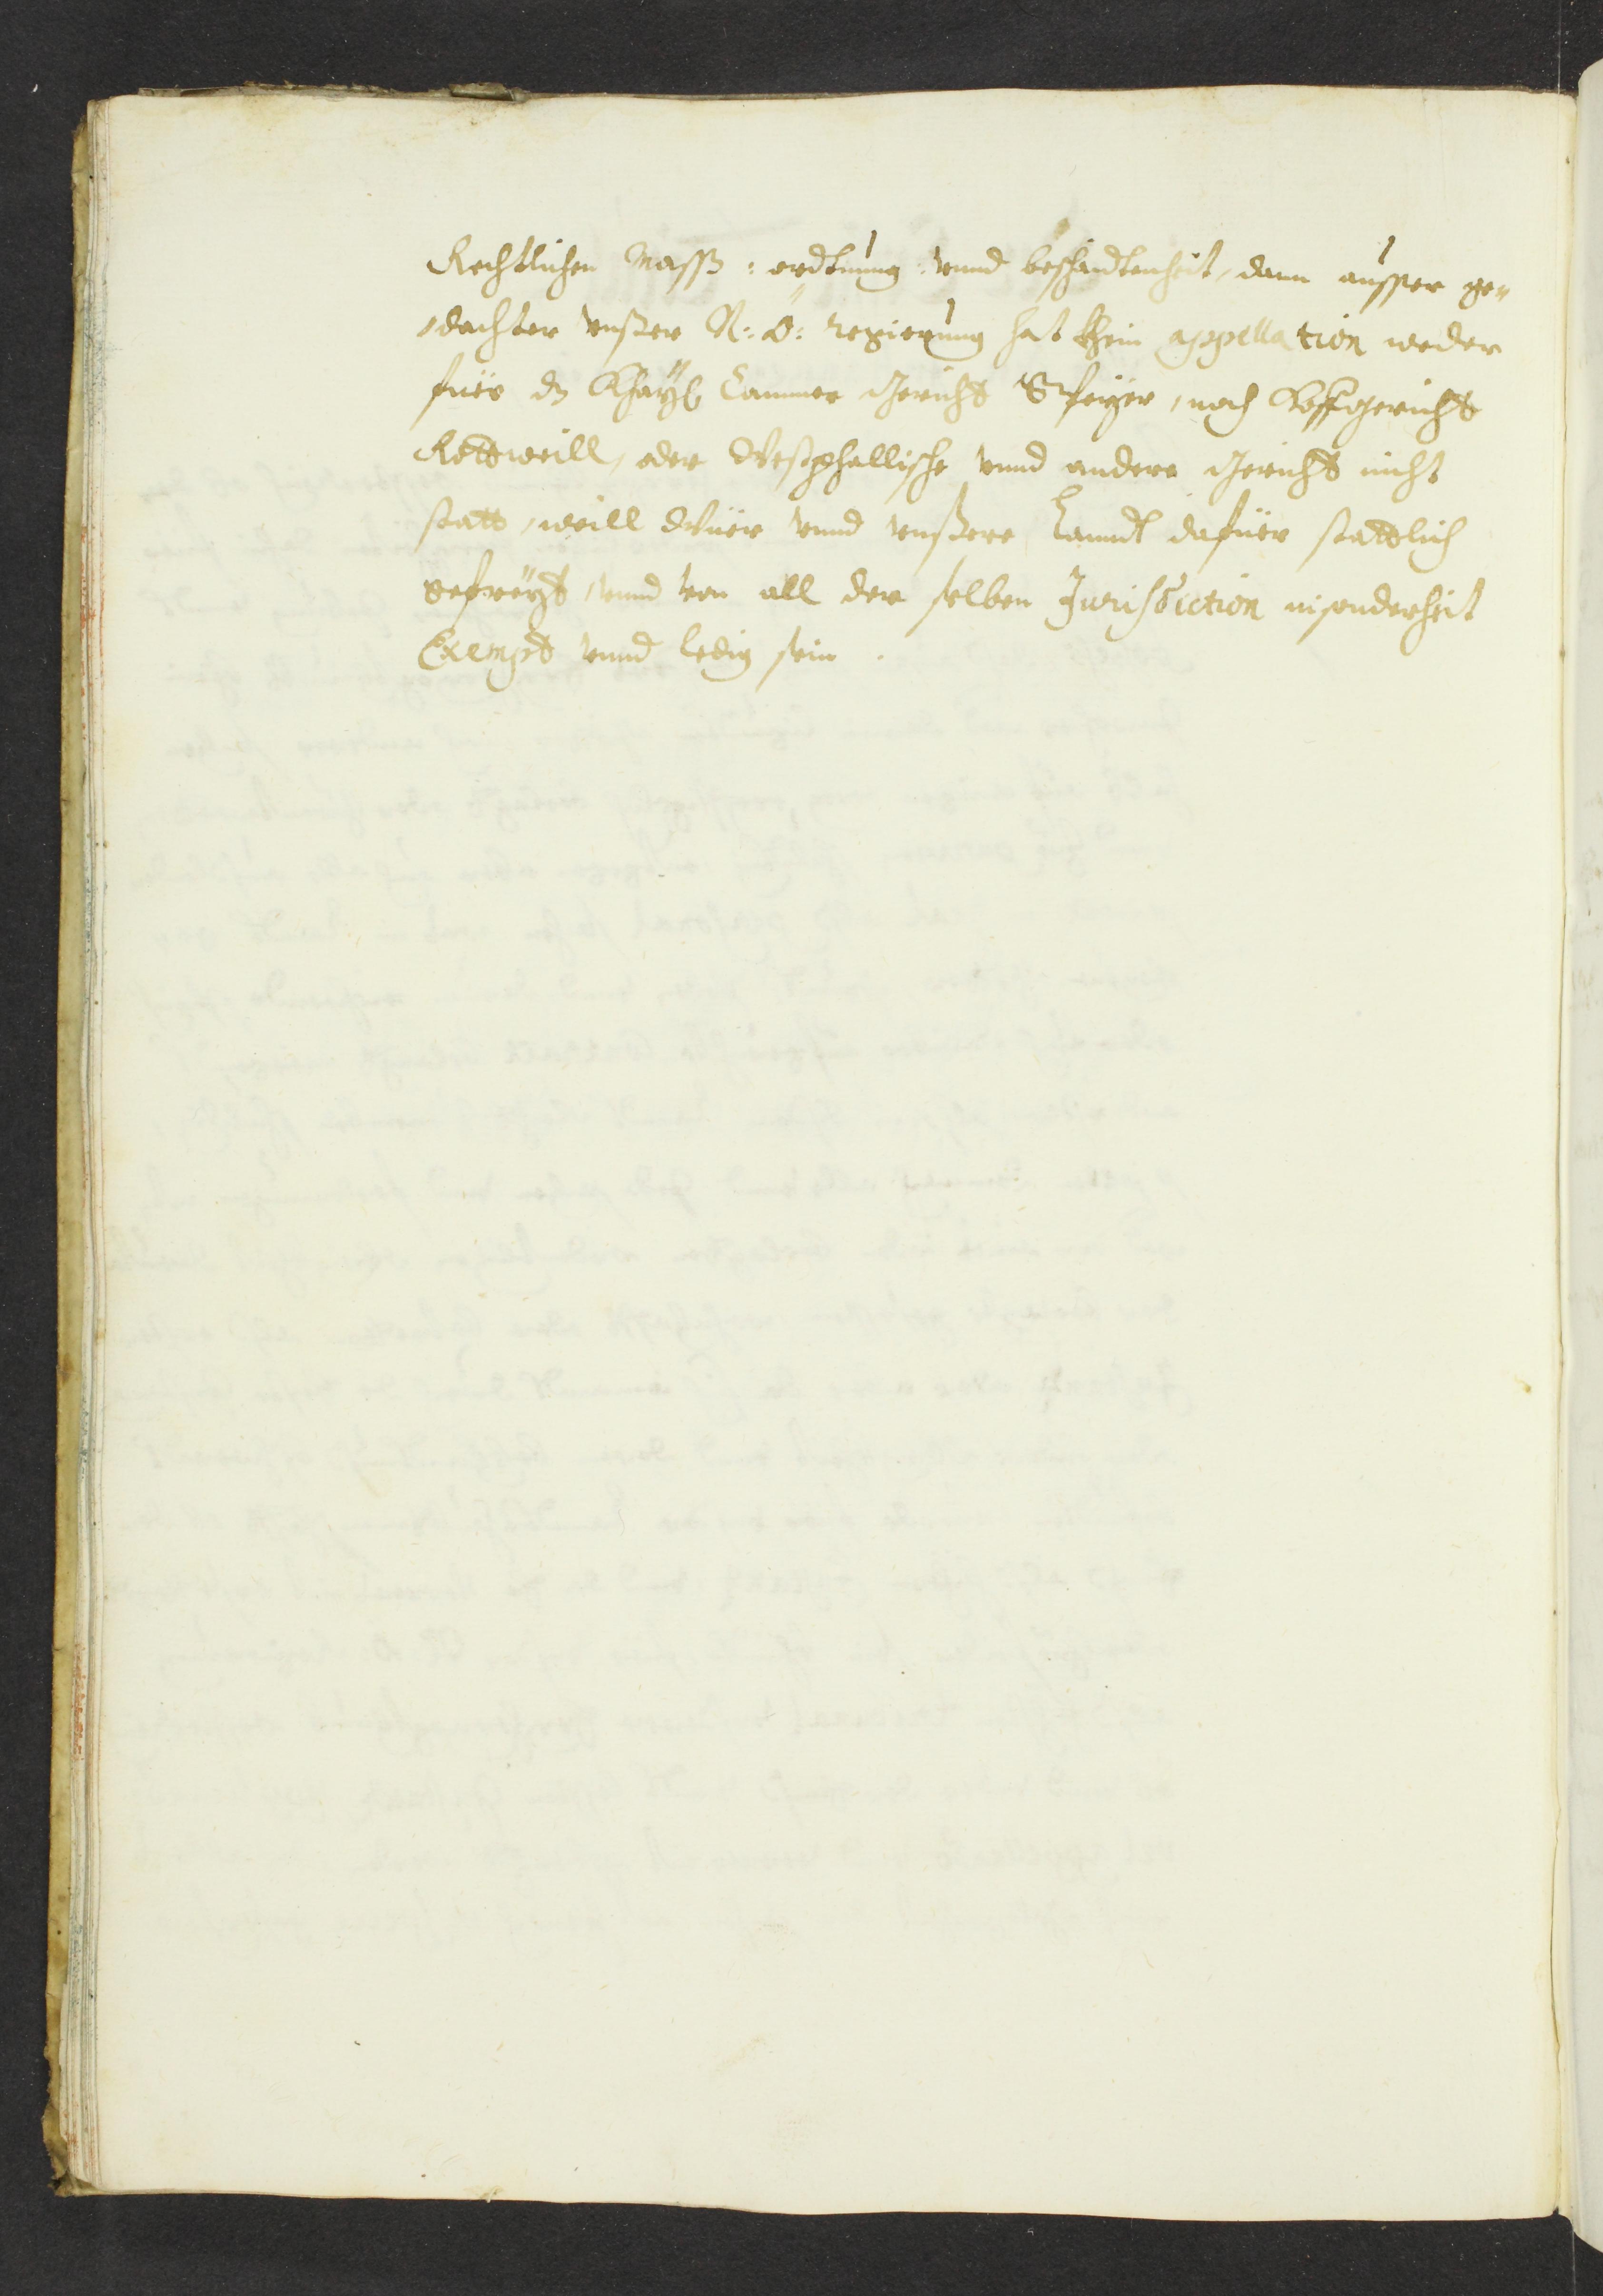 Rechtlichen Mass : ordtnung : vnnd beschaidtenheit, dann ausser ge„
„dachter vnßer N: Ö: regierung hat khein appellation weder
fuer dz Khayl Cammer Gericht Speÿer, noch Hoffgericht
Rottweill, oder Westphallische vnnd andere Gericht nicht
statt, weill Wüer vnnd vnßere Lanndt dafuer stattlich
gefreÿt, vnnd von all der selben Jurisdiction insonderheit
Exempt vnnd ledig sein .